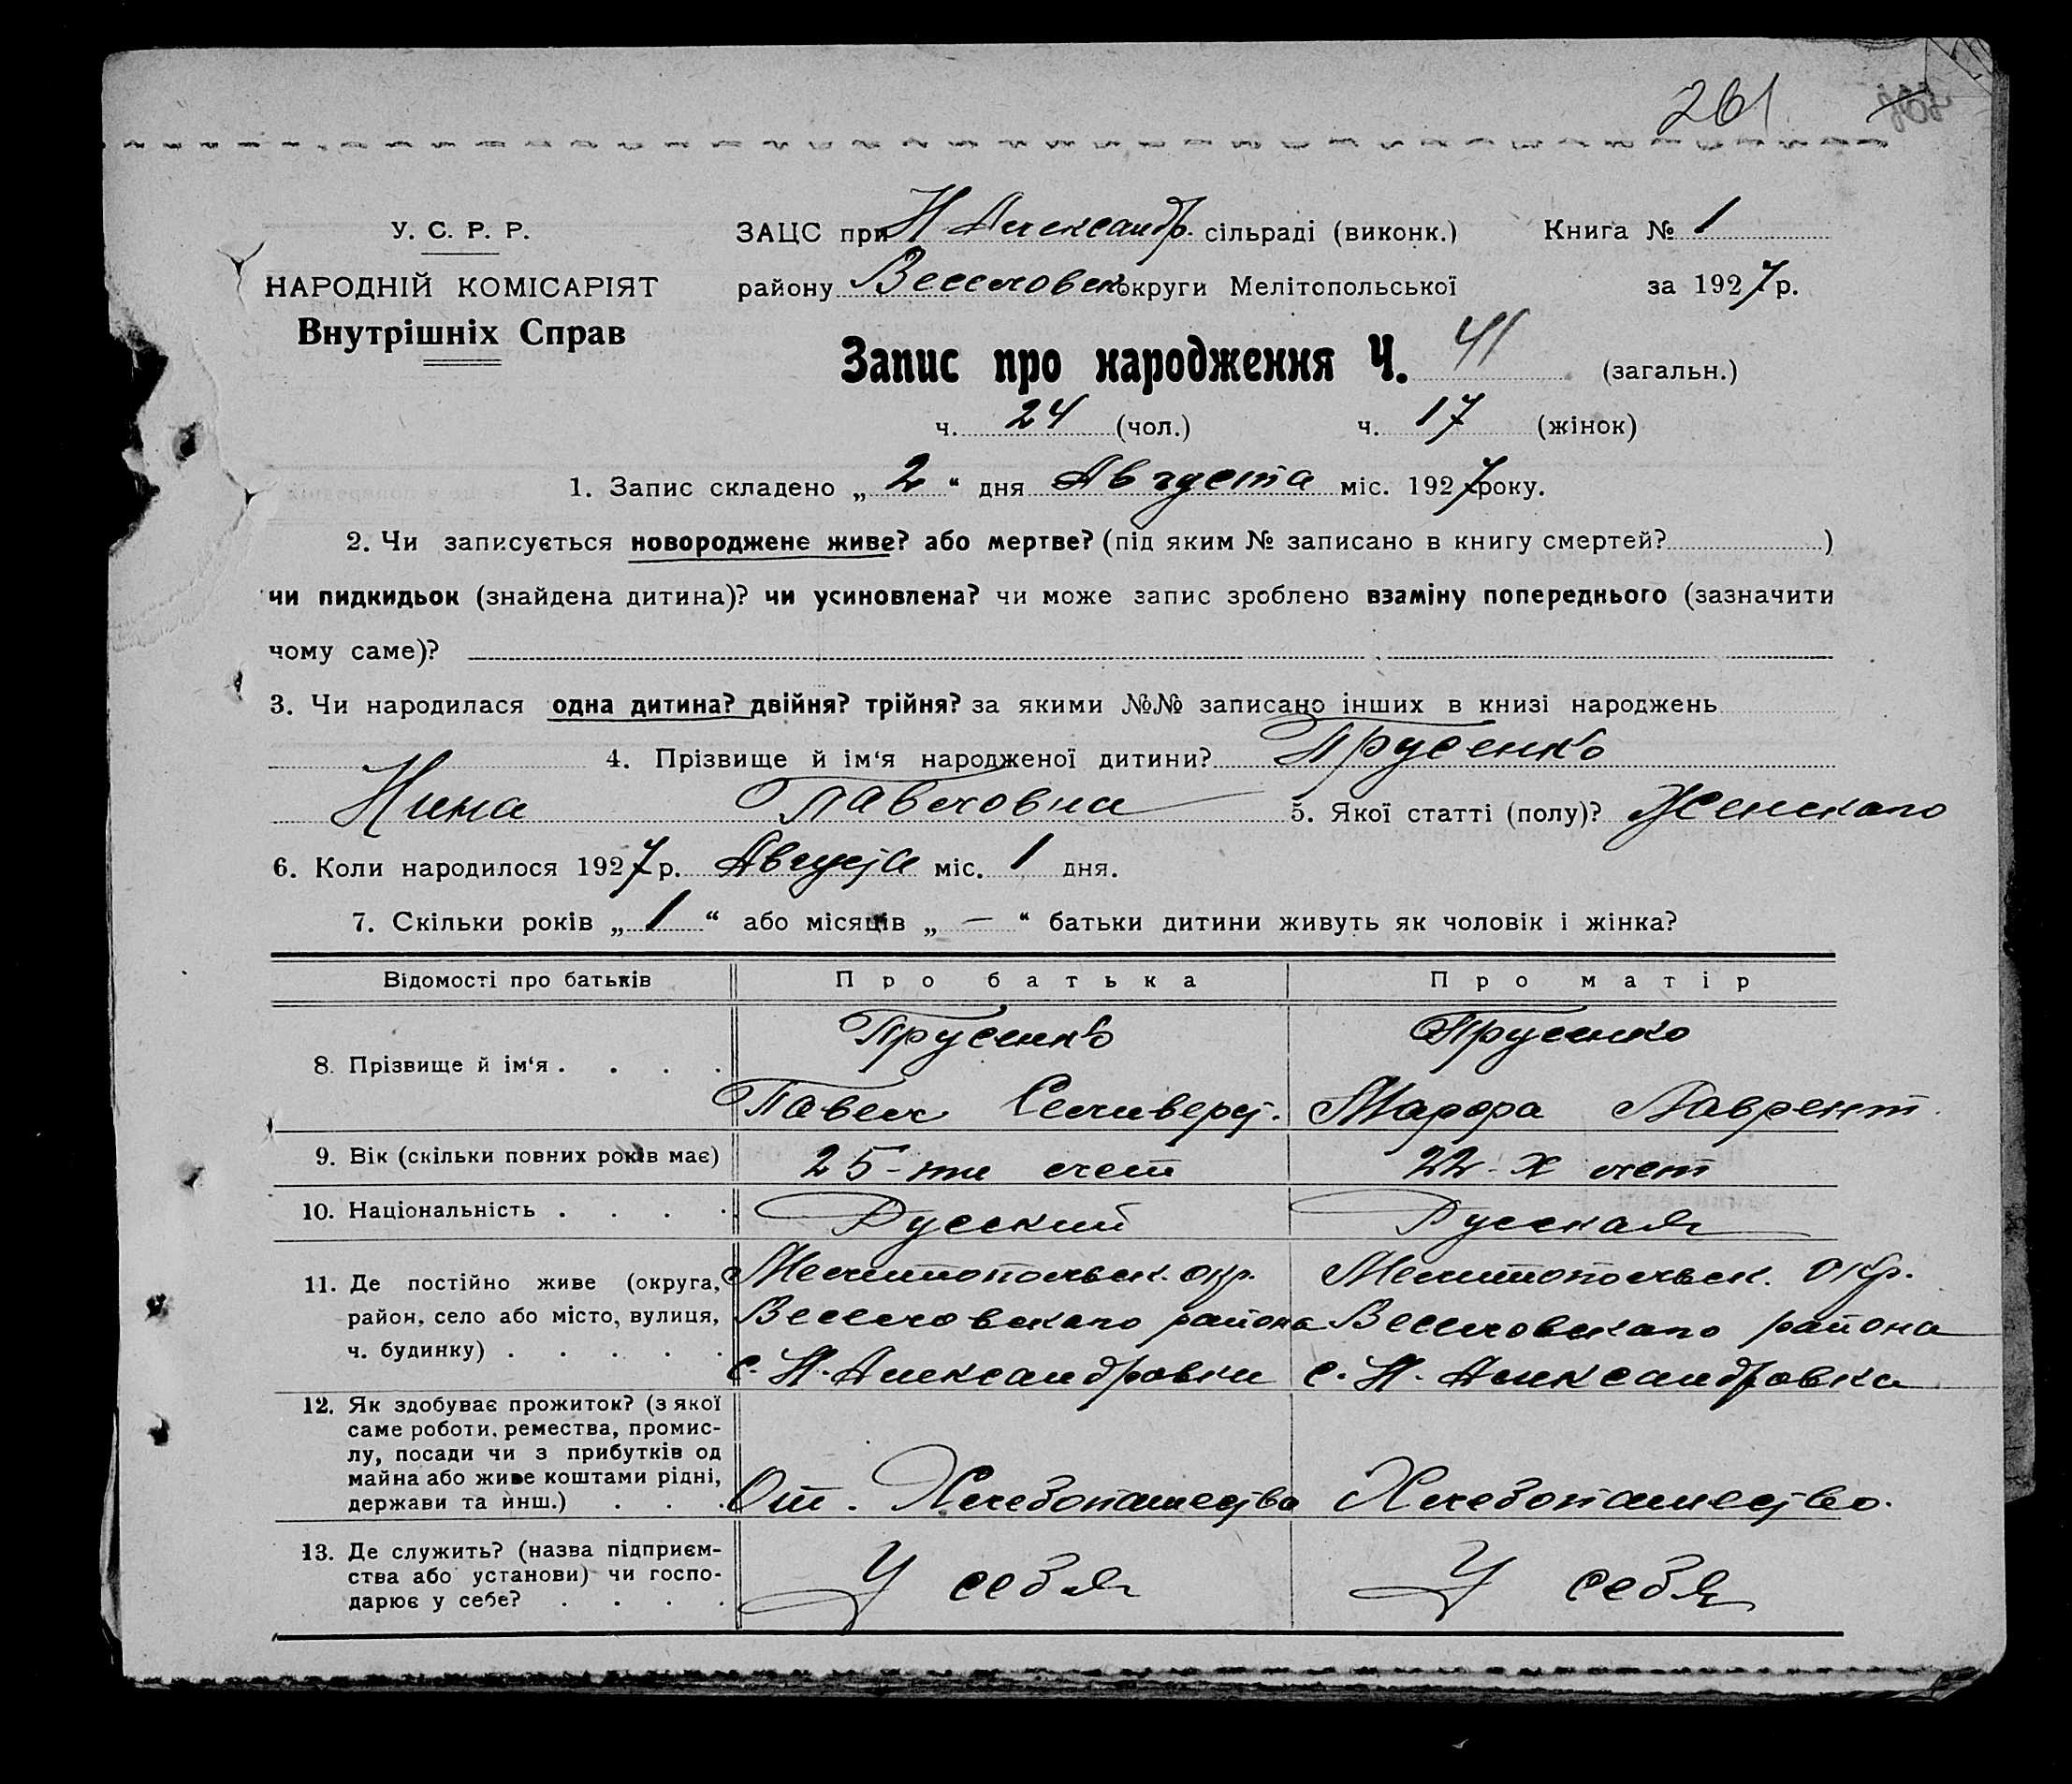 261
У. С. Р. Р.
НАРОДНІЙ КОМІСАРІЯТ
Внутрішніх Справ
ЗАЦС при Н Александр. сільраді (виконк.) Книга № 1
району Веселовск округи Мелітопольської за 1927 р.
Запис про народження Ч. 41 (загальн.)
ч. 24 (чол.) ч. 17 (жінок)
1. Запис складено „ 2 “ дня Августа міс. 1927 року.
2. Чи записується новороджене живе? або мертве? (під яким № записано в книгу смертей? )
чи пидкидьок (знайдена дитина)? чи усиновлена? чи може запис зроблено взаміну попереднього (зазначити
чому саме)?
3. Чи народилася одна дитина? двійня? трійня? за якими №№ записано інших в книзі народжень
4. Прізвище й ім‘я народженої дитини? Прусенко
Нина Павловна 5. Якої статті (полу)? Женскаго
6. Коли народилося 1927 р. Августа міс. 1 дня.
7. Скільки років „ 1 “ або місяців „ — “ батьки дитини живуть як чоловік і жінка?
Відомості про батьків Про батька Про матір
8. Прізвище й ім‘я . . . . Прусенко Прусенко
Павел Селиверст. Марфа Лаврент.
9. Вік (скільки повних років має) 25-ти лет 22-х лет
10. Національність . . . . Русский Русская
11. Де постійно живе (округа, Мелитопольск. окр. Мелитопольск. Окр.
район, село або місто, вулиця, Веселовскаго района Веселовскаго района
ч. будинку) . . . . . с. Н. Александровки с. Н. Александровка
12. Як здобуває прожиток? (з якої
саме роботи, ремества, промис-
лу, посади чи з прибутків од
майна або живе коштами рідні,
держави та инш.) . . . От. Хлебопашества Хлебопашество.
13. Де служить? (назва підприєм-
ства або установи) чи госпо- У себя У себя
дарює у себе? . . . .